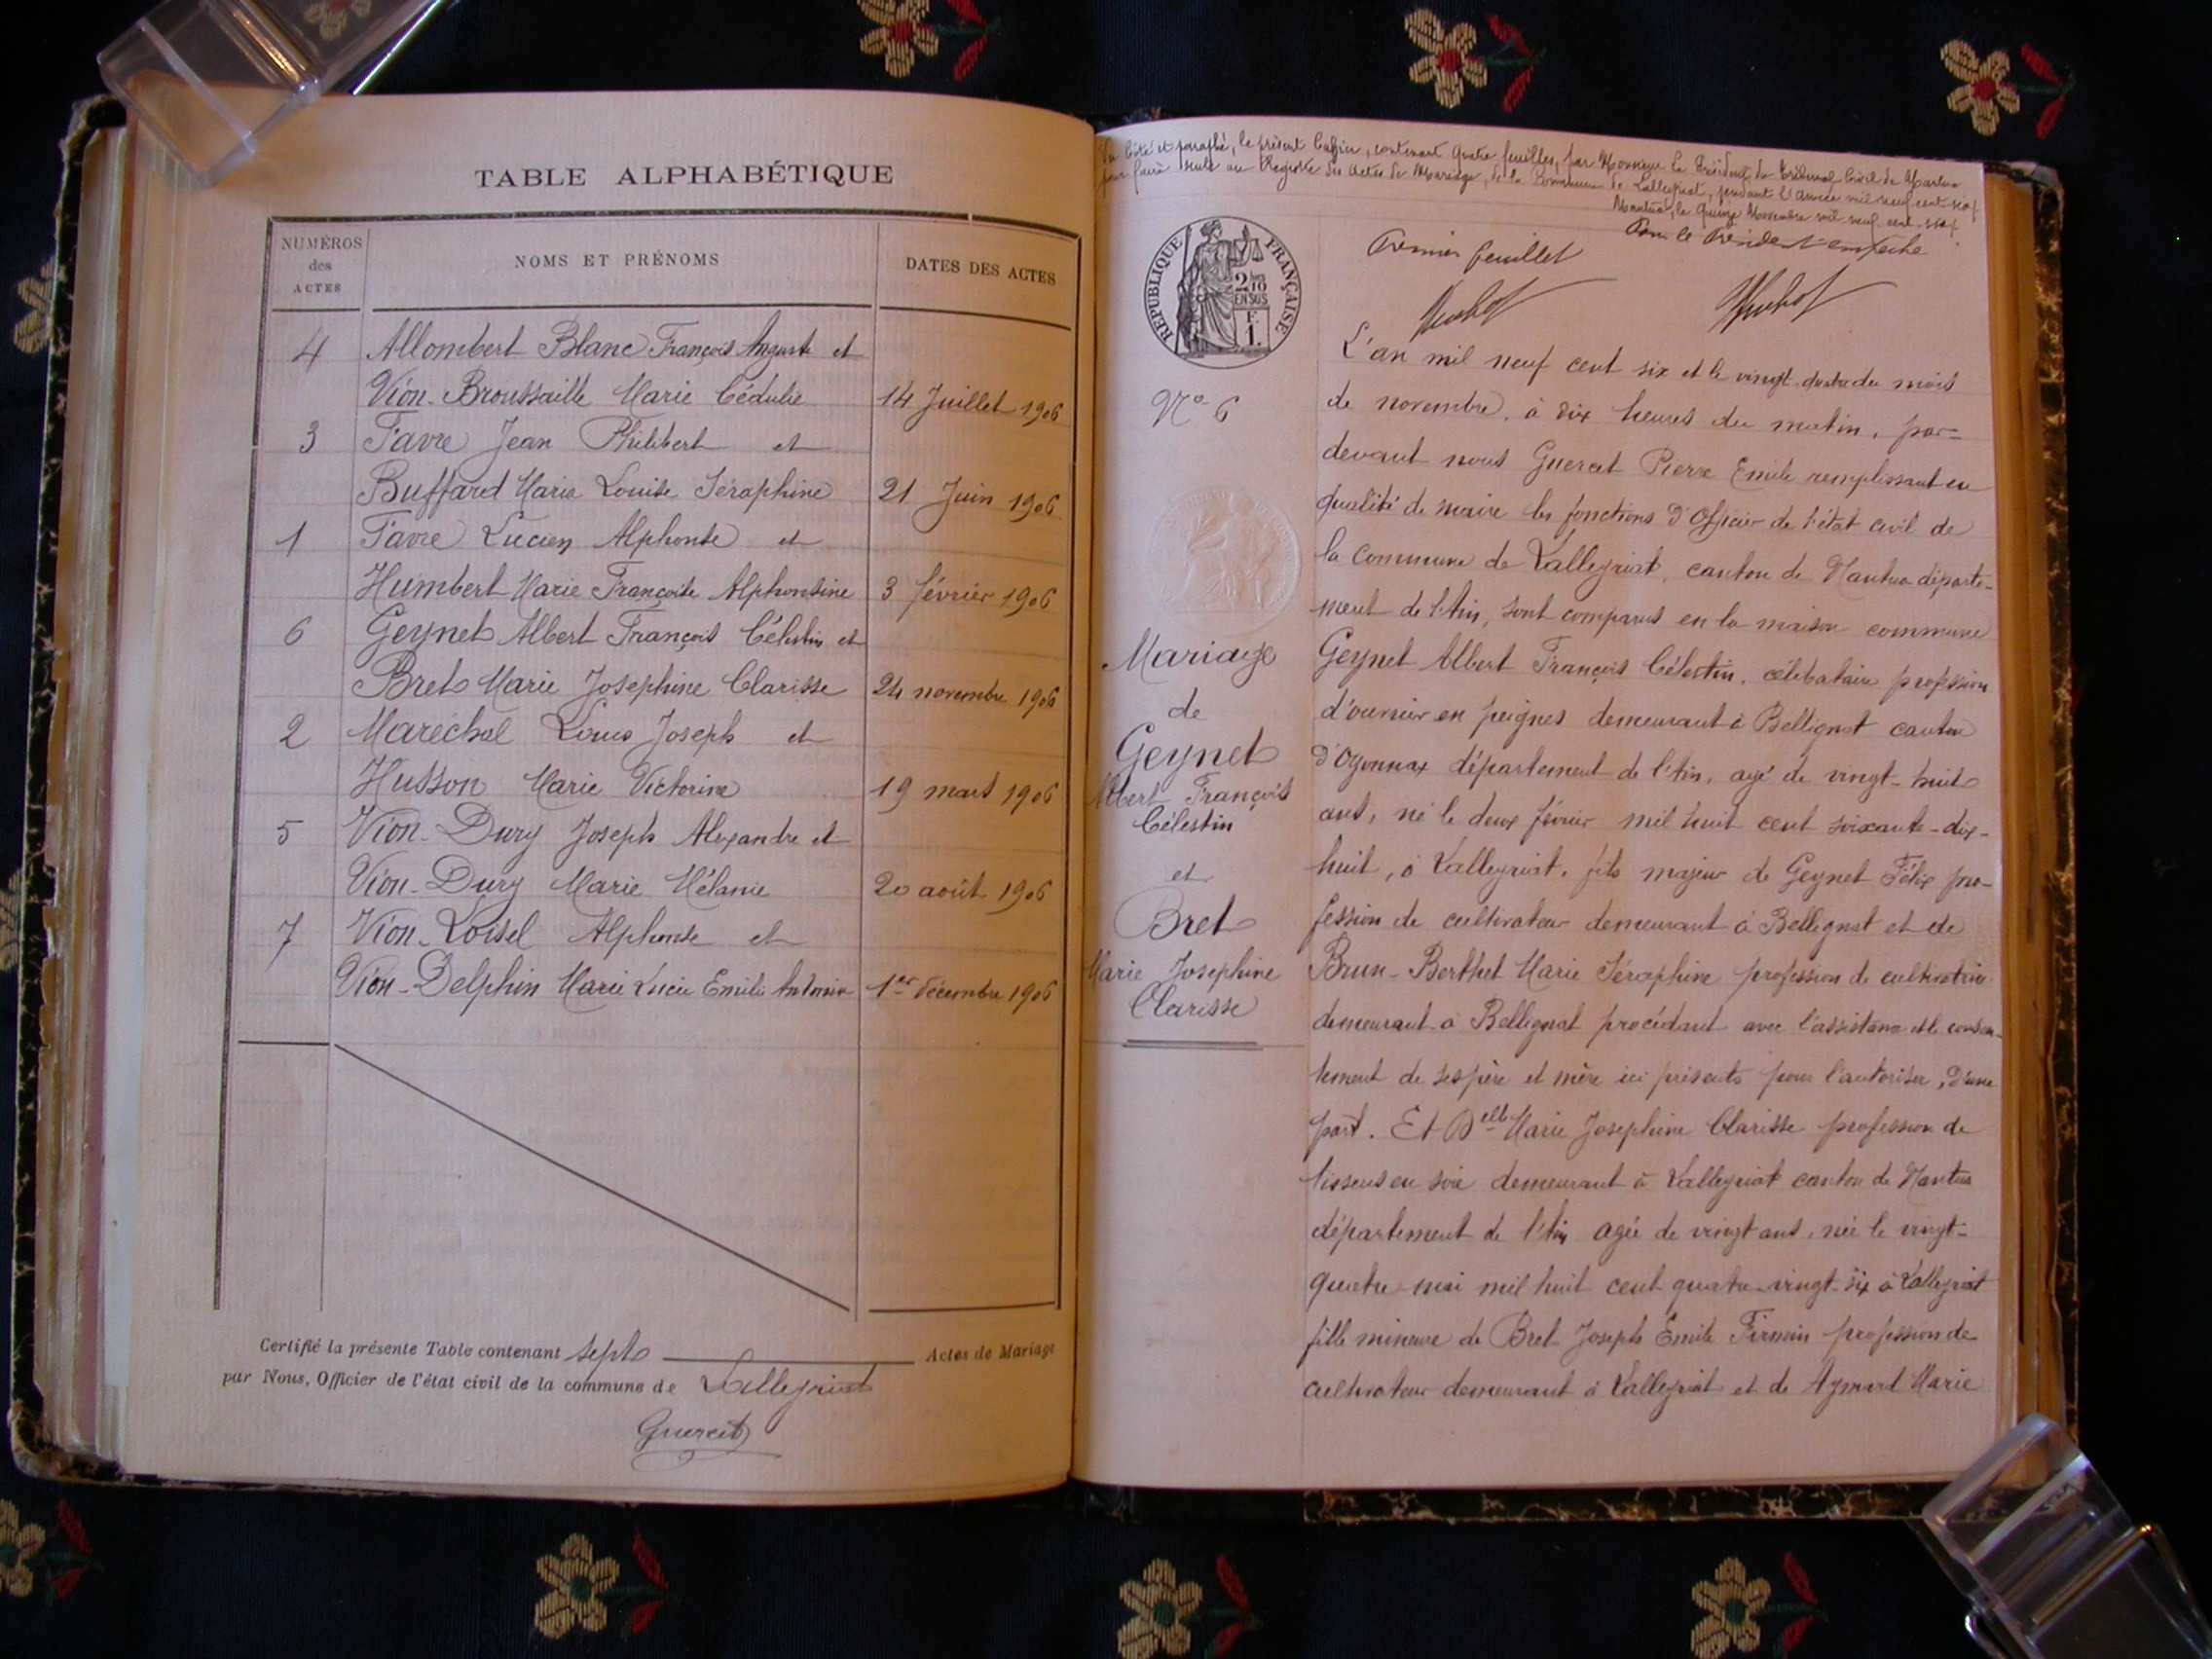 TABLE ALPHABÉTIQUE
NUMÉROS
des
ACTES
NOMS ET PRÉNOMS
DATES DES ACTES
4 Allombert Blanc François Auguste et
Vion-Broussaille Marie Cédulie 14 Juillet 1906
3 Favre Jean Philibert et
Buffard Marie Louise Séraphine 21 Juin 1906
1 Favre Lucien Alphonse et
Humbert Marie Françoise Alphonsine 3 février 1906
6 Geynet Albert François Célestin et
Bret Marie Josephine Clarisse 24 novembre 1906
2 Maréchal Louis Joseph et
Husson Marie Victorine 19 mars 1906
5 Vion-Dury Joseph Alexandre et
Vion-Dury Marie Mélanie 20 août 1906
7 Vion-Loisel Alphonse et
Vion-Delphin Marie Lucie Emilie Antonia 1er décembre 1906
Certifié la présente Table contenant sept Actes de Mariage
par Nous, Officier de l'état civil de la commune de Lalleyriat
Guercet
Vu Coté et paraphé, le présent Cahier, contenant quatre feuilles, par Monsieur le Président du Tribunal Civil de Nantua
pour faire suite au Registre des Actes de Mariage, de la Commune de Lalleyriat, pendant l'Année mil neuf cent six
Nantua, le quinze Novembre mil neuf cent six
Pour le Président empêché
Premier feuillet
RÉPUBLIQUE FRANÇAISE
2/10
EN SUS
F.
1.
L'an mil neuf cent six et le vingt-quatre du mois
No 6
de novembre, à dix heures du matin, par-
devant nous Guercet Pierre Emile remplissant en
qualité de maire les fonctions d'Officier de l'état civil de
la commune de Lalleyriat, canton de Nantua départe-
ment de l'Ain, sont comparus en la maison commune
Mariage
de
Geynet
Albert François
Célestin
et
Bret
Marie Josephine
Clarisse
Geynet Albert François Célestin, célibataire profession
d'ouvrier en peignes demeurant à Bellignat canton
d'Oyonnax département de l'Ain, agé de vingt-huit
ans, né le deux février mil huit cent soixante-dix-
huit, à Lalleyriat, fils majeur de Geynet Félix pro-
fession de cultivateur demeurant à Bellignat et de
Brun-Berthet Marie Séraphine profession de cultivatrice
demeurant à Bellignat procédant avec l'assistance et le consen-
tement de ses père et mère ici présents pour l'autoriser, d'une
part. Et Delle Marie Josephine Clarisse profession de
tisseuse en soie demeurant à Lalleyriat canton de Nantua
département de l'Ain agée de vingt ans, née le vingt-
quatre mai mil huit cent quatre-vingt-six à Lalleyriat
fille mineure de Bret Joseph Emile Firmin profession de
cultivateur demeurant à Lalleyriat et de Aymard Marie